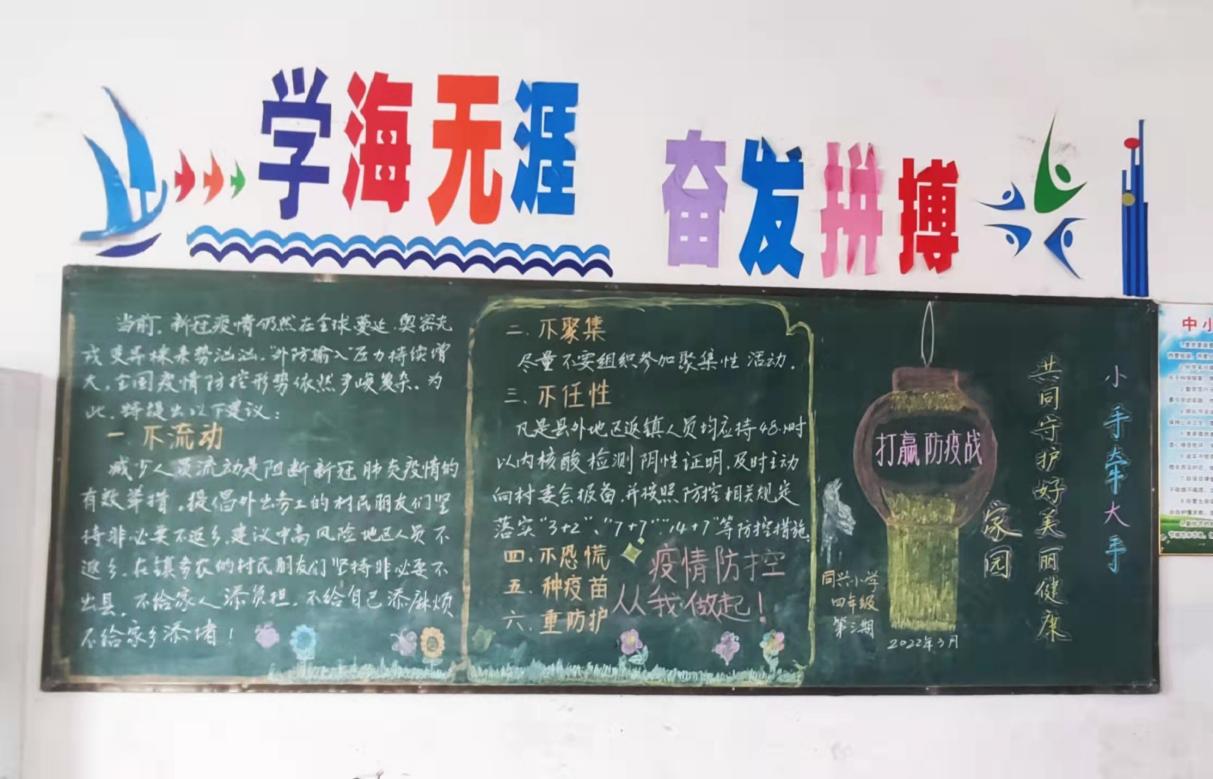 学海无涯
奋发拼搏
当前，新冠疫情仍然在全球蔓延，奥密克
戎变异株来势汹汹，"外防输入"压力持续增
大，全国疫情防控形势依然严峻复杂。为
此，特提出以下建议：
一 不流动
减少人员流动是阻断新冠肺炎疫情的
有效举措，提倡外出务工的村民朋友们坚
持非必要不返乡，建议中高风险地区人员不
返乡，在镇务农的村民朋友们坚持非必要不
出县，不给家人添负担，不给自己添麻烦
不给家乡添堵！
二、不聚集
尽量不要组织参加聚集性活动．
三、不任性
凡是县外地区返镇人员均应持48小时
以内核酸检测阴性证明，及时主动
向村委会报备，并按照防控相关规定
落实"3+2"、"7+7""14+7"等防控措施
四、不恐慌
五、种疫苗
六、重防护
疫情防控
从我做起！
同兴小学
四年级
第三期
打赢防疫战
2022年3月
小手牵大手
共同守护好美丽健康
家园
中小